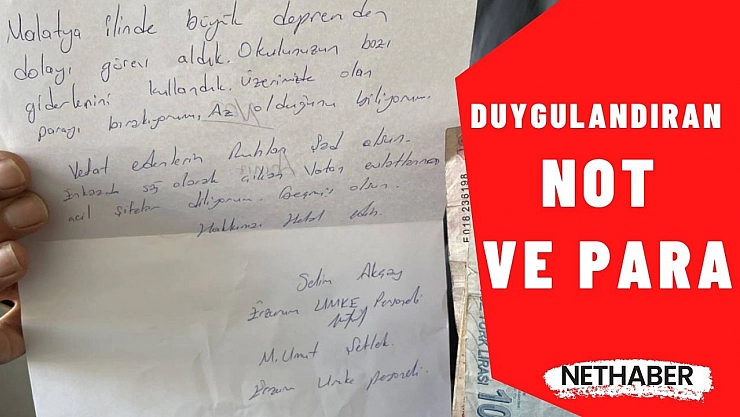 Malatya ilinde büyük depremden
dolayı görev aldık. Okulunuzun bazı
giderlerini kullandık. Üzerimizde olan
parayı bırakıyorum. Az olduğunu biliyorum.
Vefat edenlerin Ruhları Şad olsun.
Enkazdan sağ olarak çıkan Vatan evlatlarına
acil şifalar diliyorum. Geçmiş olsun.
Hakkınızı Helal edin.
Selim Aksay
Erzurum UMKE Personeli
M. Umut
Erzurum Umke personeli.
E018 236198
TÜRK LİRASI
10
DUYGULANDIRAN
NOT
VE PARA
NETHABER